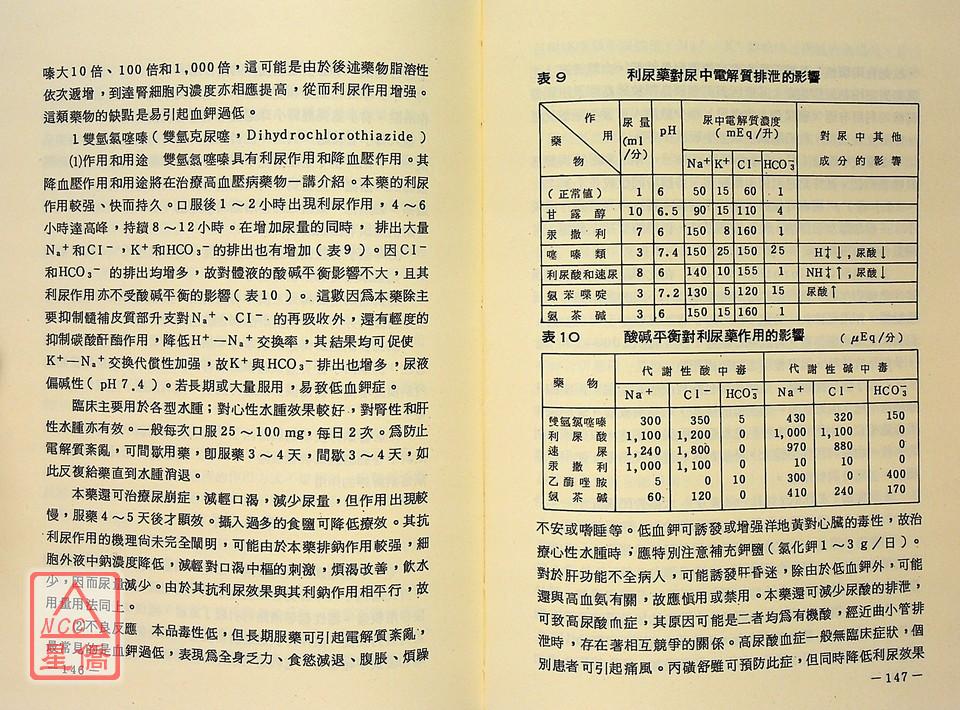 嗪大10倍、100倍和1,000倍，這可能是由於後述藥物脂溶性
依次遞增，到達腎細胞內濃度亦相應提高，從而利尿作用增强。
這類藥物的缺點是易引起血鉀過低。
1.雙氫氯噻嗪（雙氫克尿噻，Dihydrochlorothiazide）
⑴作用和用途　雙氫氯噻嗪具有利尿作用和降血壓作用。其
降血壓作用和用途將在治療高血壓病藥物一講介紹。本藥的利尿
作用較强、快而持久。口服後1～2小時出現利尿作用，4～6
小時達高峰，持續8～12小時。在增加尿量的同時，排出大量
Na⁺和Cl⁻，K⁺和HCO₃⁻的排出也有增加（表9）。因Cl⁻
和HCO₃⁻ 的排出均增多，故對體液的酸碱平衡影響不大，且其
利尿作用亦不受酸碱平衡的影響（表10）。這數因爲本藥除主
要抑制髓補皮質部升支對Na⁺、Cl⁻ 的再吸收外，還有輕度的
抑制碳酸酐酶作用，降低H⁺—Na⁺交換率，其結果均可促使
K⁺—Na⁺交換代償性加强，故K⁺與HCO₃⁻排出也增多，尿液
偏碱性（pH7.4）。若長期或大量服用，易致低血鉀症。
臨床主要用於各型水腫；對心性水腫效果較好，對腎性和肝
性水腫亦有效。一般每次口服25～100mg，每日2次。爲防止
電解質紊亂，可間歇用藥，卽服藥3～4天，間歇3～4天，如
此反復給藥直到水腫消退。
本藥還可治療尿崩症，減輕口渴，減少尿量，但作用出現較
慢，服藥4～5天後才顯效。攝入過多的食鹽可降低療效。其抗
利尿作用的機理尙未完全闡明，可能由於本藥排鈉作用較强，細
胞外液中鈉濃度降低，減輕對口渴中樞的刺激，煩渴改善，飲水
少，因而尿量減少。由於其抗利尿效果與其利鈉作用相平行，故
用量用法同上。
⑵不良反應　本品毒性低，但長期服藥可引起電解質紊亂，
最常見的是血鉀過低，表現爲全身乏力、食慾減退、腹脹、煩躁
—146—
NCC
星僑
表9　利尿藥對尿中電解質排泄的影響
作用　藥物　尿量（ml/分）　pH　尿中電解質濃度（mEq/升）　對尿中其他成分的影響
Na⁺　K⁺　Cl⁻　HCO₃⁻
（正常値）　1　6　50　15　60　1
甘露醇　10　6.5　90　15　110　4
汞撒利　7　6　150　8　160　1
噻嗪類　3　7.4　150　25　150　25　H‡↓，尿酸↓
利尿酸和速尿　8　6　140　10　155　1　NH‡↑，尿酸↓
氨苯喋啶　3　7.2　130　5　120　15　尿酸↑
氨茶碱　3　6　150　15　160　1
表10　酸碱平衡對利尿藥作用的影響　（μEq/分）
藥物　代謝性酸中毒　代謝性碱中毒
Na⁺　Cl⁻　HCO₃⁻　Na⁺　Cl⁻　HCO₃⁻
雙氫氯噻嗪　300　350　5　430　320　150
利尿酸　1,100　1,200　0　1,000　1,100　0
速尿　1,240　1,800　0　970　880　0
汞撒利　1,000　1,100　0　10　10　0
乙酶唑胺　5　0　10　300　0　400
氨茶碱　60　120　0　410　240　170
不安或嗜睡等。低血鉀可誘發或增强洋地黃對心臟的毒性，故治
療心性水腫時，應特別注意補充鉀鹽（氯化鉀1～3g/日）。
對於肝功能不全病人，可能誘發肝昏迷，除由於低血鉀外，可能
還與高血氨有關，故應愼用或禁用。本藥還可減少尿酸的排泄，
可致高尿酸血症，其原因可能是二者均爲有機酸，經近曲小管排
泄時，存在著相互競爭的關係。高尿酸血症一般無臨床症狀，個
別患者可引起痛風。丙磺舒雖可預防此症，但同時降低利尿效果
—147—